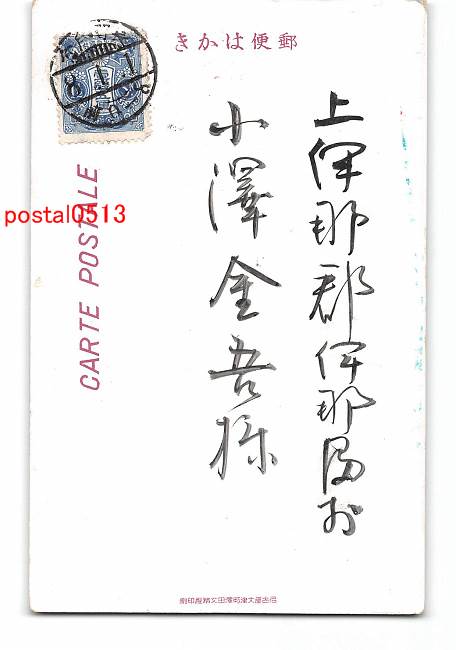 郵便はかき
上伊那郡伊那町
小澤金吾様
CARTE POSTALE
postal0513